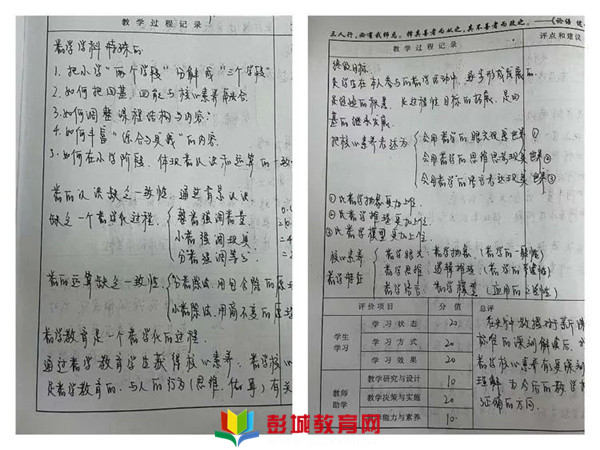 教学过程记录
数学学科 特殊的
1. 把小学“两个学段”分解成“三个学段”
2. 如何把四基、四能与核心素养融合
3. 如何调整课程结构与内容
4. 如何丰富“综合与实践”的内容
5. 如何在小学阶段, 体现数认识和运算的一致
数的认识缺乏一致性, 通过有景认识
缺乏一个数学化过程.
整数强调数量
小数强调现实
分数强调等分
数的运算缺乏一致性.
分数除法, 用包含除的原
小数除法, 用商不变的原
数学教育是一个数学化的过程
通过数学教育学生获得核心素养. 数学核心
是数学教育的, 与人的行为(思维, 做事)有关
三人行,必有我师焉。择其善者而从之,其不善者而改之。——《论语
教学过程记录
评点和建议
终极目标.
是学生在本人参与的数学活动中, 逐步形成发展的
是经验的积累, 是过程性目标的拓展, 是四
基的继承发展.
把核心素养表述为
会用数学的眼光观察世界①
会用数学的思维思考现实世界②
会用数学的语言表达现实世界③
①比数学抽象更加上位
②比数学推理更加上位
③比数学模型更加上位
核心素养
数学特征
数学眼光: 抽象 (数学的一般性)
数学思维: 逻辑推理 (数学的严谨性)
数学语言: 数学模型 (应用的广泛性)
评价项目
分值
总评
学生
学习
学习状态
20
学习方式
20
学习效果
20
教师
助学
教学研究与设计
10
教学决策与实施
20
学能力与素养
10
标准的深刻解读后, 对
数学核心素养有更深刻
理解, 为今后的教学指
了正确的方向.
彭城教育网